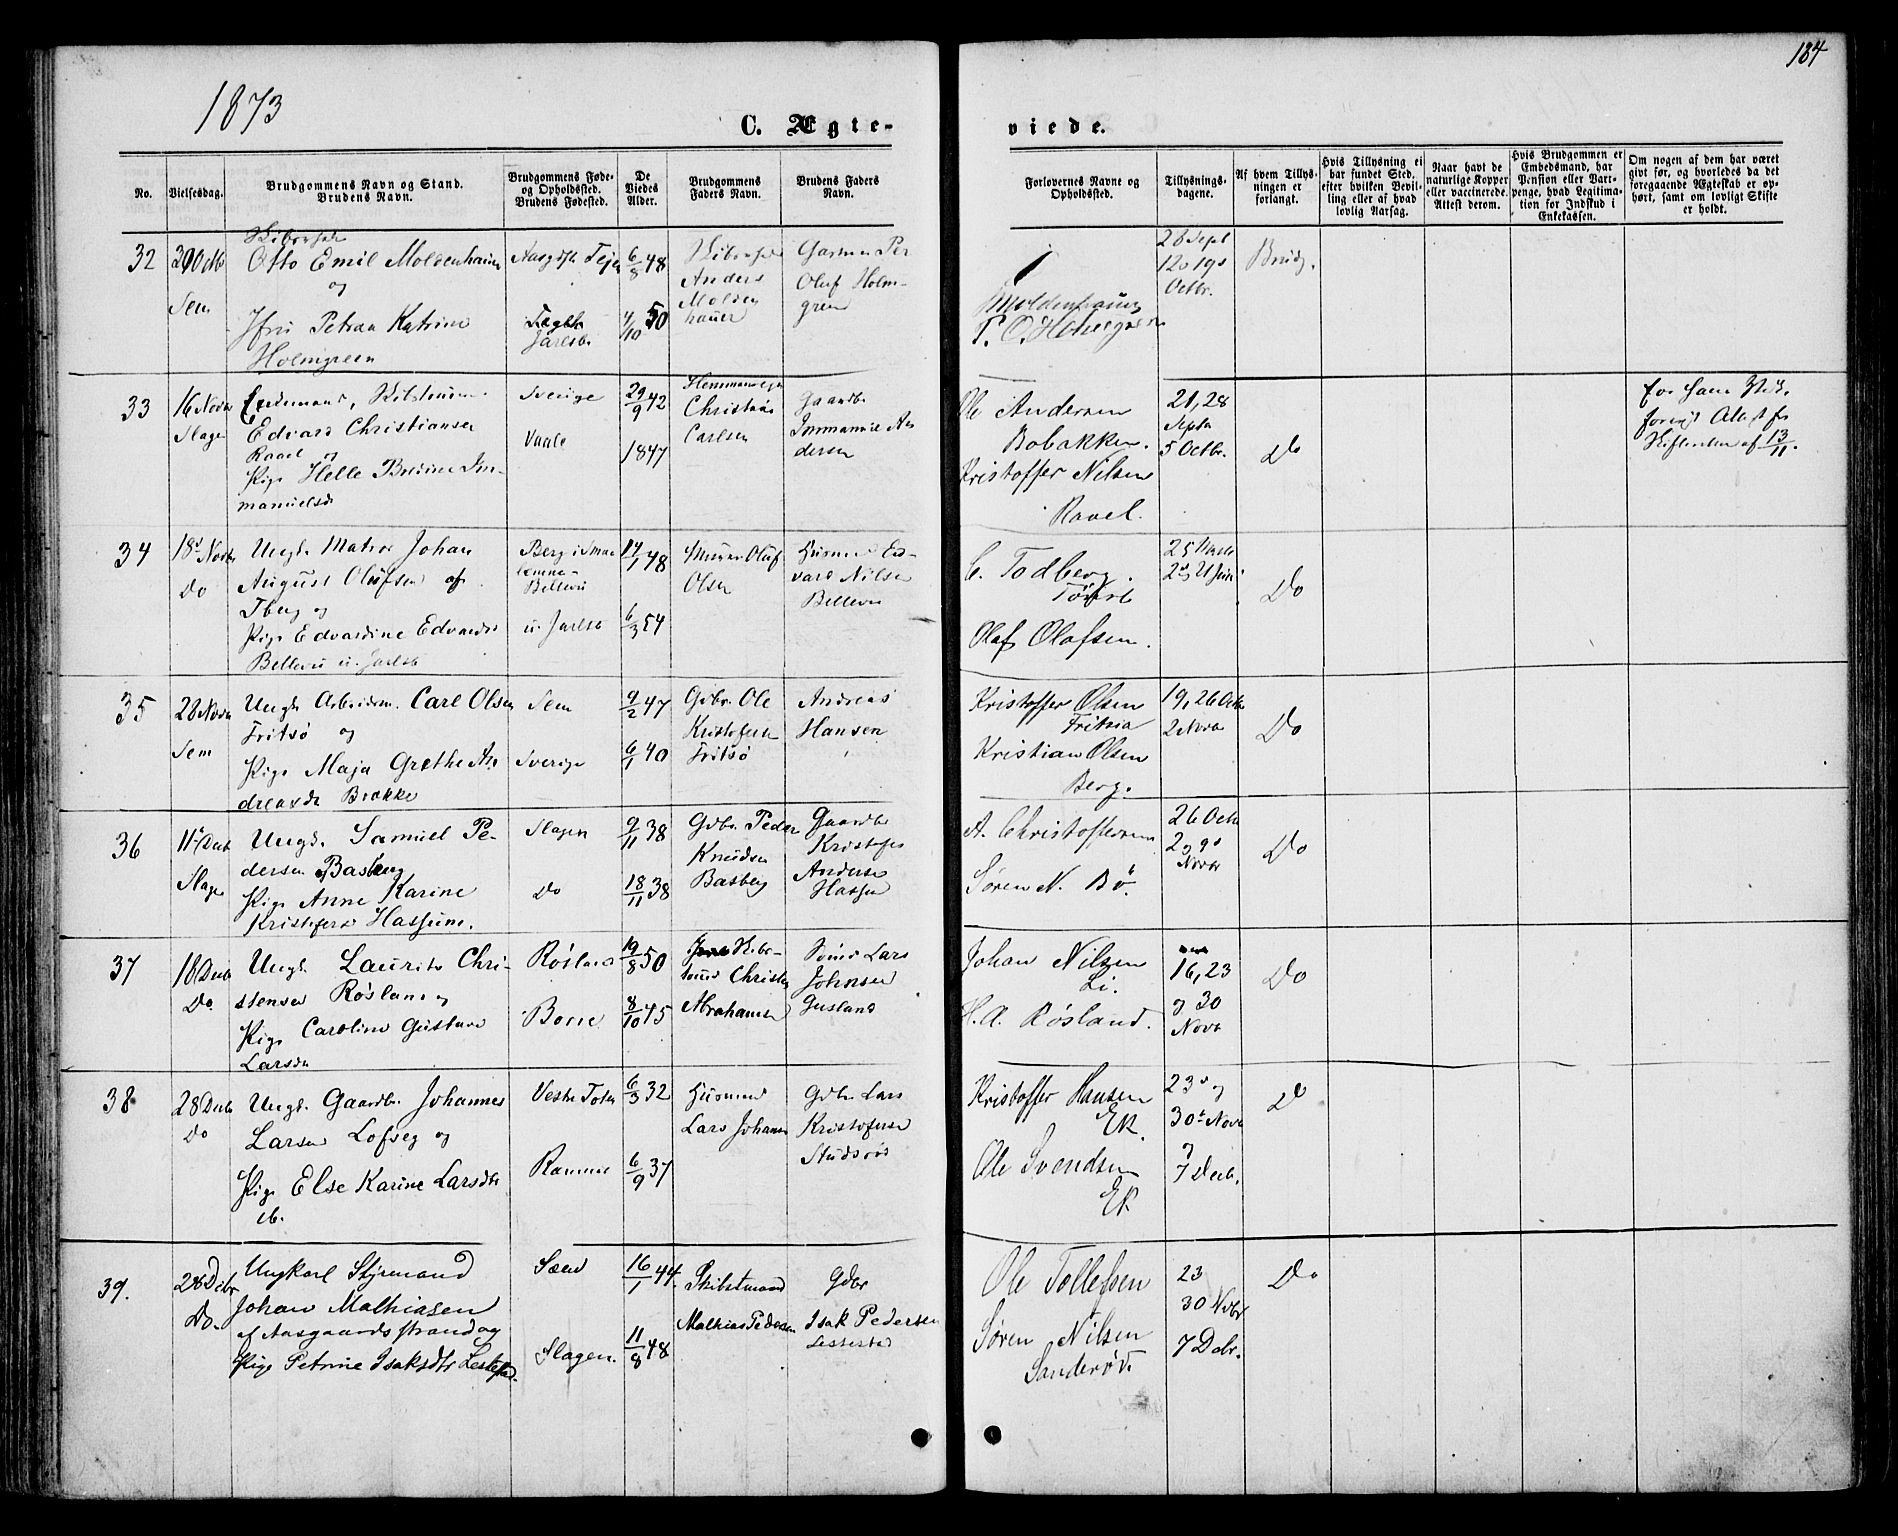 184
1873
C. Ægte-
viede.
No.
Vielsesdag.
Brudgommens Navn og Stand.
Brudens Navn.
Brudgommens Føde-
og Opholdssted.
Brudens Fødested.
De
Viedes
Alder.
Brudgommens
Faders Navn.
Brudens Faders
Navn.
Forlovernes Navne og
Opholdssted.
Tillysnings-
dagene.
Af hvem Tillys-
ningen er
forlangt.
Hvis Tillysning ei
har fundet Sted,
efter hvilken Bevil-
ling eller af hvad
lovlig Aarsag.
Naar havt de
naturlige Kopper
eller vaccinerede.
Attest derom.
Hvis Brudgommen er
Embedsmand, har
Pension eller Vart-
penge, hvad Legitima-
tion for Indskud i
Enkekassen.
Om nogen af dem har været
givt før, og hvorledes da det
foregaaende Ægteskab er op-
hørt, samt om lovligt Skifte
er holdt.
32
Sem
Otto Emil Moldenhauer
og
Jfru Petrea Katrine
Holmgreen
6/8 48
4/10 50
Anders
Molden
hauer
Olaf Holm-
gren
28 Sept
12 og 19
Octbr.
Brudg.
33
16 Novbr
Slagen
Edvard Christiansen
Ravel og
Pige Helle Bredine Im-
manuelsdr
Sverige
Vaale
29/9 42
1847
Christian
Carlsen
Gaardbr
Immanuel An
dersen
Ole Andersen
Bobakken.
Kristoffer Nilsen
Ravel.
21, 28
Septbr
5 Octbr.
Do
13/11
34
18 Novbr
Do
Ungk. Matros Johan
August Olufsen af
og
Pige Edvardine Edvardsd
Bellevu u. Jarlsb
Bellevu
u. Jarlsb
14/1 48
6/3 54
Oluf
Olsen
Husmd Ed-
vard Nilsen
Bellevu
C. Todberg.
Olaf Olafsen.
Do
35
28 Novbr
Sem
Ungk. Arbeidsm. Carl Olsen
Fritsø og
Pige Maja Grethe An
dreasdr Brekke
Sem
Sverige
9/2 47
6/1 40
Gdbr. Ole
Kristofersen
Fritsø
Andreas
Hansen
Kristoffer Olsen
Kristian Olsen
Berg.
19, 26 Octbr
2 Novbr
Do
36
11 Decbr
Slagen
Ungk. Samuel Pe-
dersen af Basberg
Pige Anne Karine
Kristofersd Hassum.
Slagen
Do
9/11 38
18/11 38
Gdbr. Peder
Knudsen
Basberg
Gaardbr
Kristofer
Andersen
A. Christoffersen
Søren N. Bö.
26 Octbr
2 og 9
Novbr
Do
37
18 Decbr
Do.
Ungk. Laurits Chri-
stensen Røsland og
Pige Caroline Gustava
Larsdr
Røsland
Borre
19/8 50
8/10 45
Christen
Abrahamsen
Lars
Johnsen
Gusland
Johan Nilsen
Li.
H. A. Røsland.
16, 23
og 30
Novbr
Do
38
28 Decbr
Do
Ungk. Gaardbr. Johannes
Larsen Lofseg og
Pige Else Karine Larsdtr
Vestre Toten
Ramnæs
6/3 32
6/9 37
Husmand
Lars Johansen
Gdbr Lars
Kristofersen
Studsrøs
Kristoffer Hansen
Ek.
Ole Svendsen
Ek.
23 og
30 Novbr
og
7 Decb.
Do
39.
28 Debr
Do.
Ungkarl Styrmand
Johan Mathiasen
af Aasgaardsstrand og
Pige Petrine Isaksdtr Lestestad.
Sem
Slagen.
16/1 44.
11/8 48
Skibstmand
Mathias Pedersen
Gdbr
Isak Pedersen
Lestestad
Ole Tollefsen
Søren Nilsen
Sanderød.
23
30 Nvbr
7 Debr.
Do